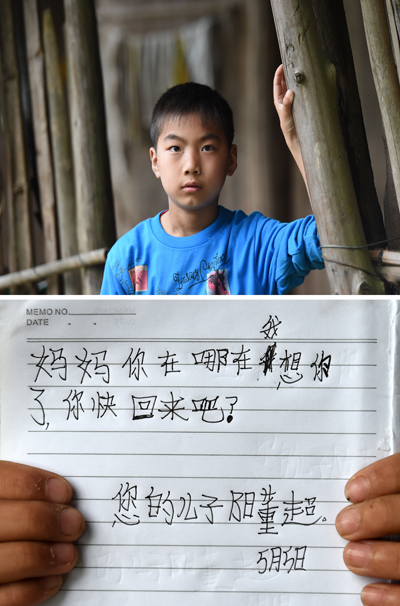 MEMO NO.
DATE
妈妈你在哪在我想你
了,你快回来吧?
您的儿子阳董超。
5月5日